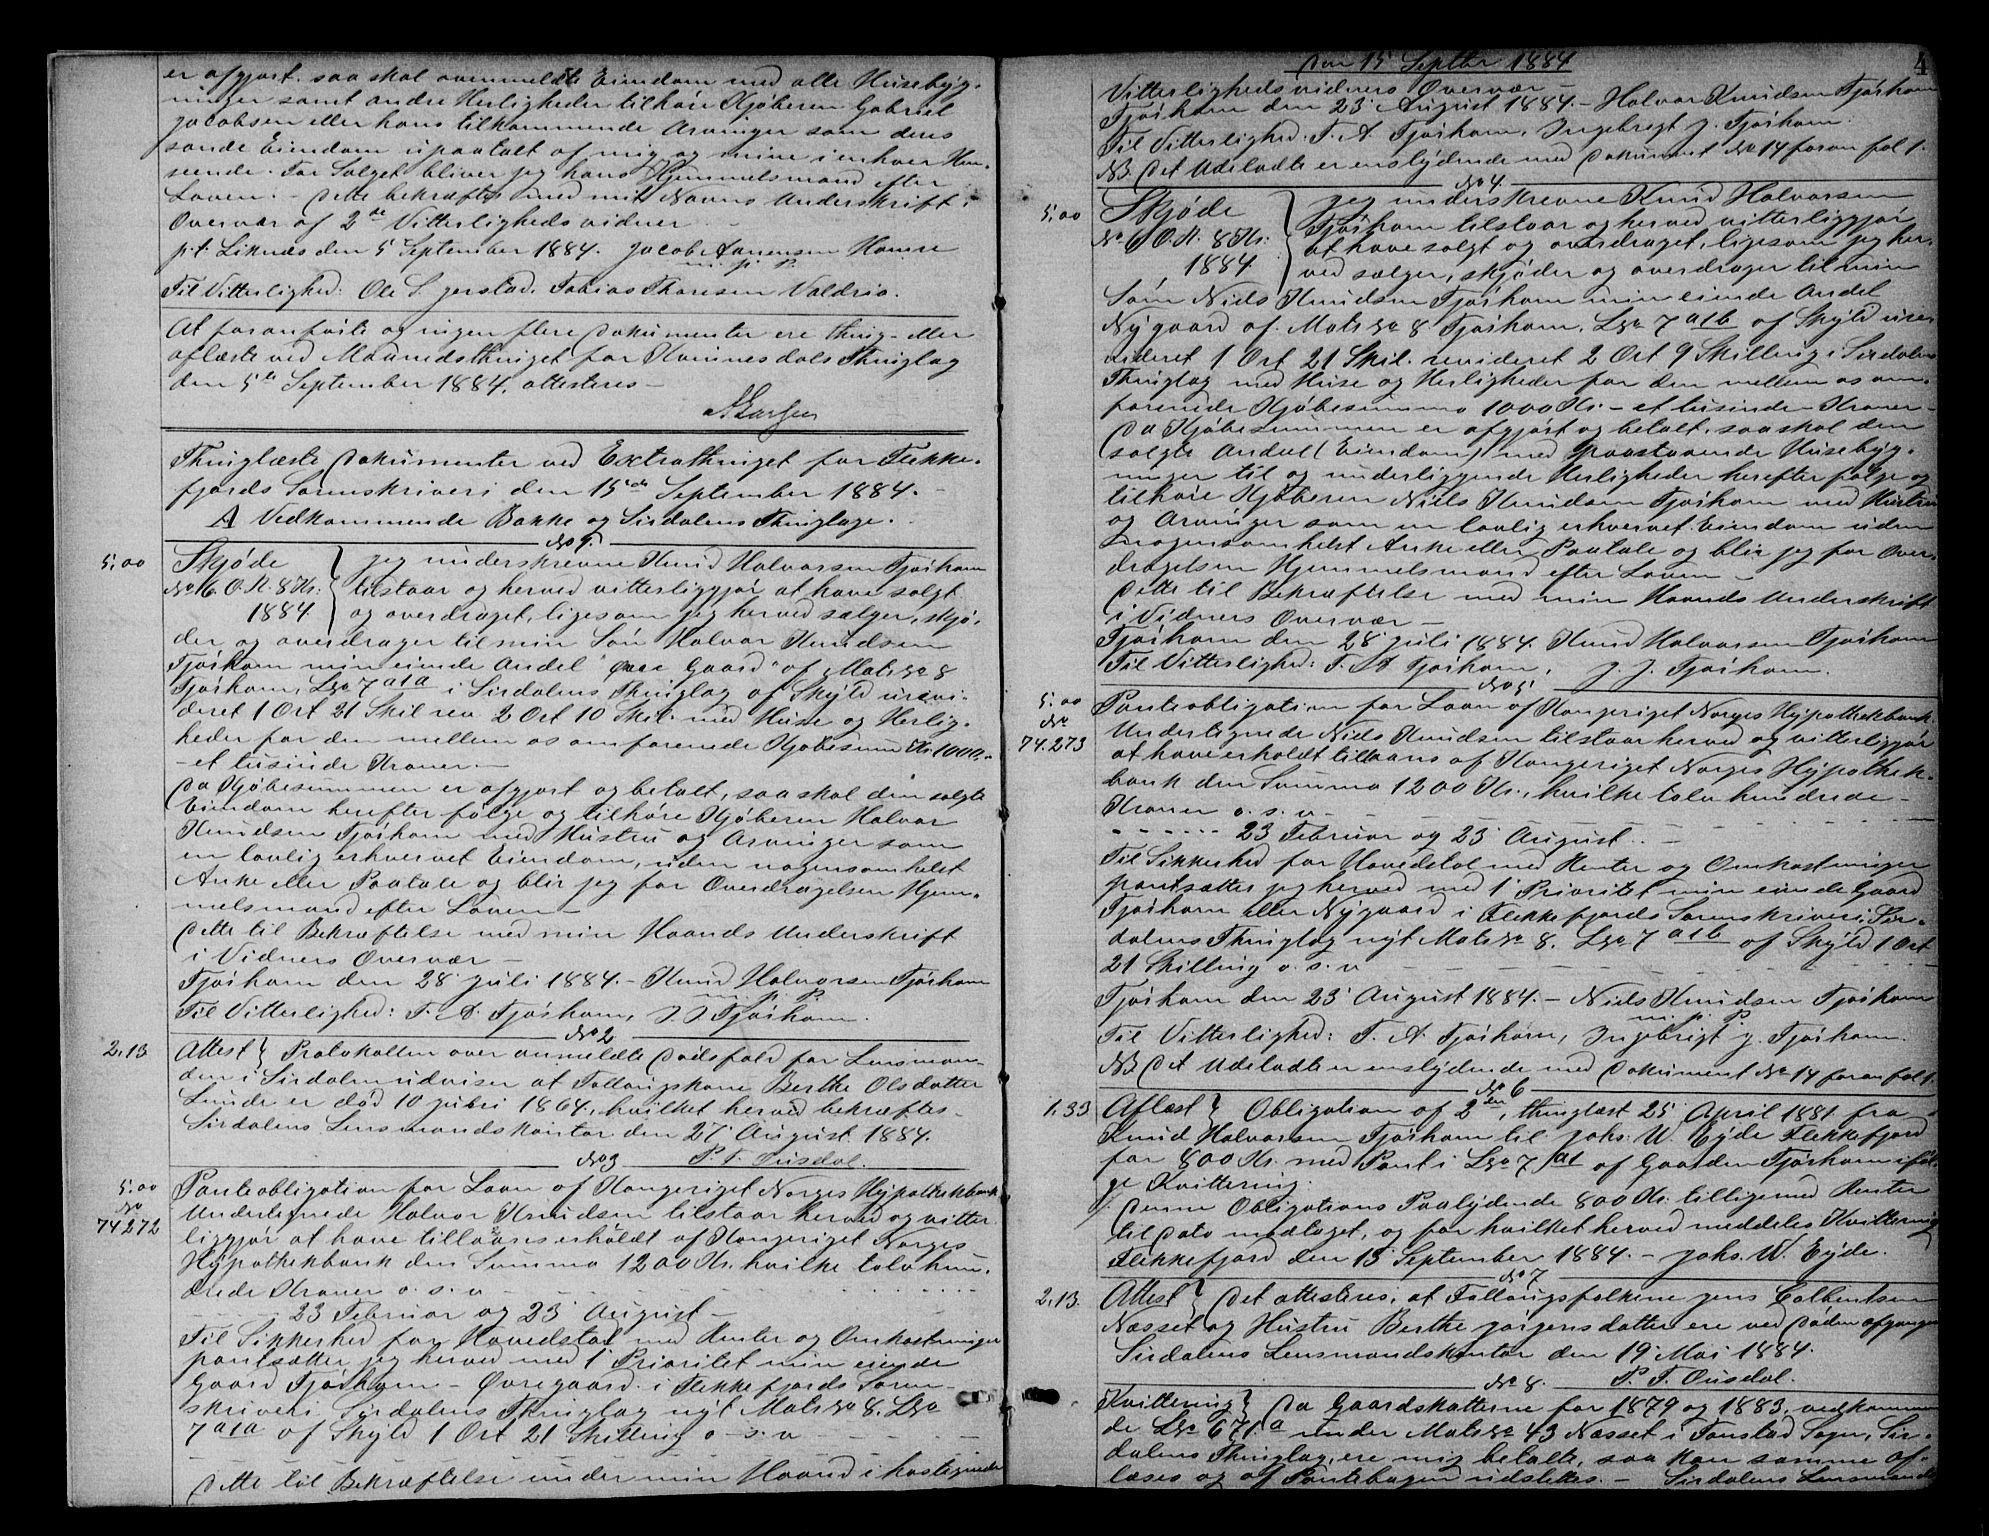 er afgjort, saa skal ovenmeldte Eiendom med alle Husebyg-
ninger samt andre Herligheder tilhøre Kjøberen Gabriel
Jacobsen eller hans tilkommende Arvinger som deres
sande Eiendom upaatalt af mig og mine i enhver Hen-
seende. For Salget bliver jeg hans Hjemmelsmand efter
Loven. - Dette bekræftes med mit Navns Underskrift i
Overvær af 2de Vitterlighedsvidner -
p.t. Liknæs den 5 September 1884. Jacob Aanensen
m. p. P.
Til Vitterlighed: Ole S. Jerstad. Tobias Thoresen
At foranførte og ingen flere Dokumenter ere thing- eller
aflæste ved Maanedsthinget for Kvinnesdals Thinglag
den 5te September 1884, attesteres -
Thinglæste Dokumenter ved Extrathinget for Flekke-
fjords Sorenskriveri den 15de September 1884. -
A Vedkommende Bakke og Sirdalens Thinglage.
No 1.
5.00 Skjøde } Jeg underskrevne Knud Halvorsen Tjørhom
No 16. O. K. 8 Kr. tilstaar og herved vitterliggjør at have solgt
1884 og overdraget, ligesom jeg herved sælger, skjø-
der og overdrager til min Søn Halvor Knudsen
Tjørhom min eiende Andel "Øvre Gaard" af Mats No 8
Tjørhom, L No 7 a1a i Sirdalens Thinglag af Skyld urevi-
deret 1 Ort 21 Skil rev. 2 Ort 10 Skil. med Huse og Herlig-
heder for den mellem os omforenede Kjøbesum Kr 1000,-
- et tusinde Kroner. -
Da Kjøbesummen er afgjort og betalt, saa skal den solgte
Eiendom herefter følge og tilhøre Kjøberen Halvor
Knudsen Tjørhom med Hustru og Arvinger som
en lovlig erhvervet Eiendom, uden nogensomhelst
Anke eller Paatale og blir jeg for Overdragelsen Hjem-
melsmand efter Loven -
Dette til Bekræftelse med min Haands Underskrift
i Vidners Overvær -
Tjørhom den 28 Juli 1884. - Knud Halvorsen Tjørhom
m. p. P.
Til Vitterlighed: T. A. Tjørhom, J. J. Tjørhom.
No 2
2.13 Attest } Protokollen over anmeldte Dødsfald for Lensman-
den i Sirdalen udviser at Føllougskone Berthe Olsdatter
Lunde er død 10 Juli 1864, hvilket herved bekræftes -
Sirdalens Lensmandskontor den 27 August 1884.
P. T. Ousdal.
No 3
5.00 Panteobligation for Laan af Kongeriget Norges Hypothekbank
No Undertegnede Halvor Knudsen tilstaar herved og vitter-
74272 liggjør at have tillaans erholdt af Kongeriget Norges
Hypothekbank den Summa 1200 Kr. hvilke tolv hun-
drede Kroner o. s. v. - - -
- - - 23 Februar og 23 August -
Til Sikkerhed for Hovedstol med Renter og Omkostninger
pantsætter jeg herved med 1 Prioritet min eiende
Gaard Tjørhom - Øvregaard i Flekkefjords Soren-
skriveri Sirdalens Thinglag nyt Mats No 8. L No
7 a1a af Skyld 1 Ort 21 Skilling o. s. v. - - -
Dette til Bekræftelse under min Haand i hostegnede
Den 15 Septbr 1884
4
Vitterlighedsvidners Overvær -
Tjørhom den 23 August 1884. - Halvor Knudsen Tjørhom
Til Vitterlighed: T. A. Tjørhom, Ingebrigt J. Tjørhom.
NB. Det Udeladte er enslydende med Dokument No 14 foran fol 1.
No 4.
5.00 Skjøde } Jeg underskrevne Knud Halvorsen
No 6 O. K. 8 Kr. Tjørhom tilstaar og herved vitterliggjør
1884. at have solgt og overdraget, ligesom jeg her-
ved sælger, skjøder og overdrager til min
Søn Niels Knudsen Tjørhom min eiende Andel
Nygaard af Mats No 8 Tjørhom, L No 7 a1b af Skyld ure-
videret 1 Ort 21 Skil. revideret 2 Ort 9 Skilling i Sirdalens
Thinglag med Huse og Herligheder for den mellem os om-
forenede Kjøbesumma 1000 Kr - et tusinde Kroner -
Da Kjøbesummen er afgjort og betalt, saa skal den
solgte Andel (Eiendom) med paastaaende Husebyg-
ninger til og underliggende Herligheder herefter følge og
tilhøre Kjøberen Niels Knudsen Tjørhom med Hustru
og Arvinger som en lovlig erhvervet Eiendom uden
nogensomhelst Anke eller Paatale og blir jeg for Over-
dragelsen Hjemmelsmand efter Loven -
Dette til Bekræftelse med min Haands Underskrift
i Vidners Overvær -
Tjørhom den 28 Juli 1884. Knud Halvorsen Tjørhom
Til Vitterlighed: T. A. Tjørhom, J. J. Tjørhom.
No 5
5.00 Panteobligation for Laan af Kongeriget Norges Hypothekbank.
No Undertegnede Niels Knudsen tilstaar herved og vitterliggjør
74.273 at have erholdt tillaans af Kongeriget Norges Hypothek-
bank den Summa 1200 Kr., hvilke tolv hundrede -
Kroner o. s. v. - - -
- - - 23 Februar og 23 August. - - -
Til Sikkerhed for Hovedstol med Renter og Omkostninger
pantsætter jeg herved med 1 Prioritet min eiende Gaard
Tjørhom eller Nygaard i Flekkefjords Sorenskriveri, Sir-
dalens Thinglag nyt Mats No 8. L No 7 a1b af Skyld 1 Ort
21 Skilling o. s. v. - - -
Tjørhom den 23 August 1884. - Niels Knudsen Tjørhom
m. p. P.
Til Vitterlighed: T. A. Tjørhom, Ingebrigt J. Tjørhom.
NB Det Udeladte er enslydende med Dokument No 14 foran fol 1.
No 6
1.33 Aflæst } Obligation af 2den, thinglæst 25 April 1881 fra
Knud Halvorsen Tjørhom til Johs. W. Eyde Flekkefjord
for 800 Kr. med Pant i L No 7 a1 af Gaarden Tjørhom iføl-
ge Kvittering.
Denne Obligations Paalydende 800 Kr. tilligemed Renter
til Dato modtaget, og for hvilket herved meddeles Kvittering
Flekkefjord den 13 September 1884. - Johs. W. Eyde.
No 7
2.13. Attest } Det attesteres, at Føllougsfolkene Jens Tolbentsen
Næsset og Hustru Berthe Jørgensdatter ere ved Døden afgangne
Sirdalens Lensmandskontor den 19 Mai 1884.
P. T. Ousdal.
No 8.
Kvittering } Da Gaardskatterne for 1879 og 1883, vedkommen-
de L No 671 a under Mats No 43 Næsset i Tonstad Sogn, Sir-
dalens Thinglag, ere mig betalte, saa kan samme af-
læses og af Pantebogen udslettes. - Sirdalens Lensmands